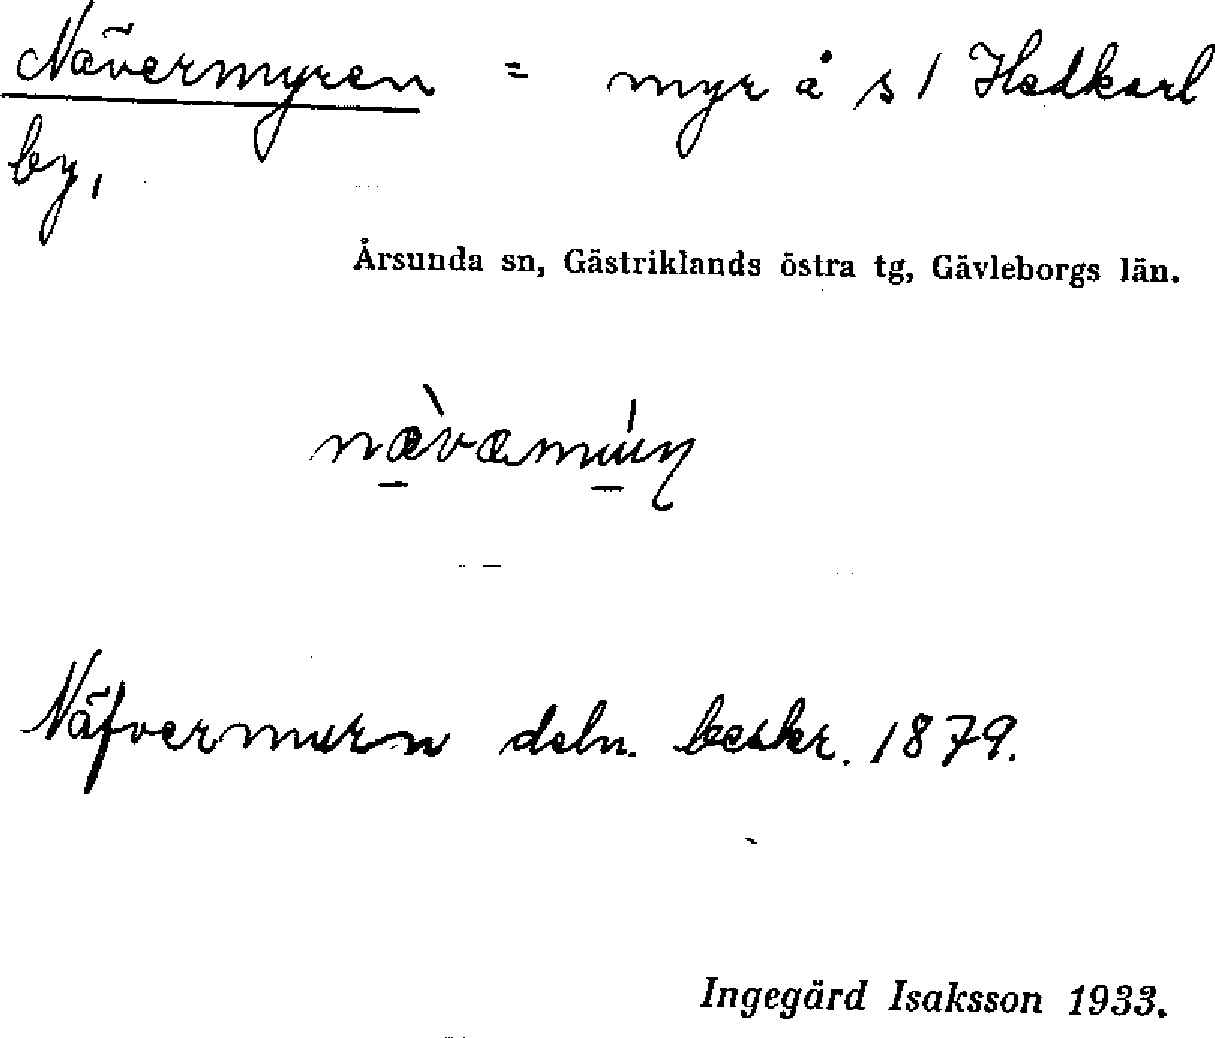 Nävermyren = myr å s / Hedkarl
by,
Årsunda sn, Gästriklands östra tg, Gävleborgs län.
Näfvermurn deln. beskr. 1879.
Ingegärd Isaksson 1933.